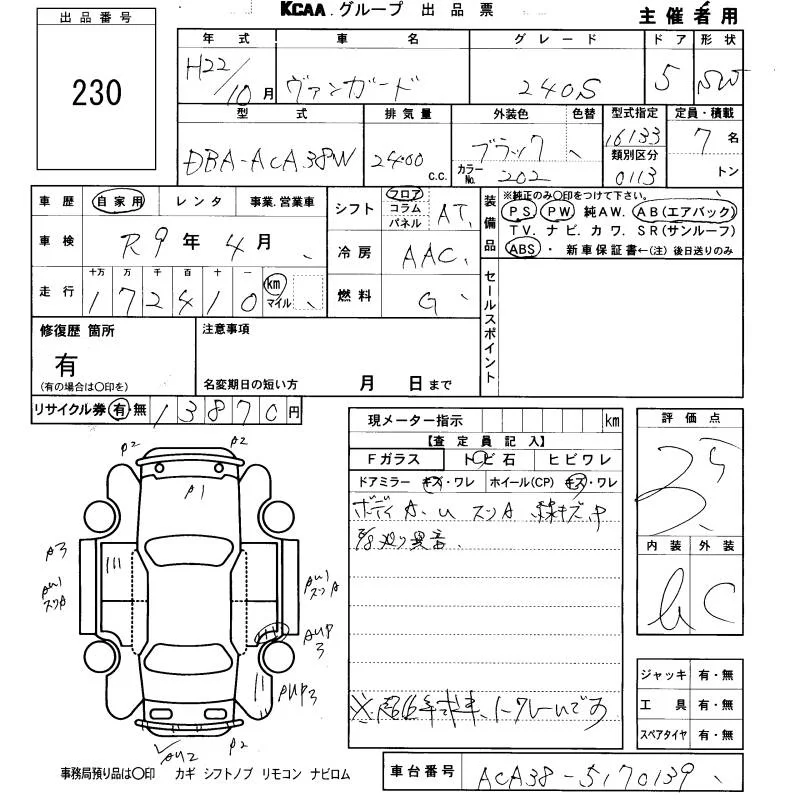 KCAA.グループ 出品票
主催者用
出品番号
230
年式 車名 グレード ドア 形状
H22/10月 ヴァンガード 240S 5 SW
型式 排気量 外装色 色替 型式指定 定員・積載
DBA-ACA38W 2400 c.c. ブラック 16133 7名
カラーNo. 202 類別区分 0113 トン
車歴 自家用 レンタ 事業.営業車
シフト フロア コラム パネル AT
装備品 ※純正のみ〇印をつけて下さい。
PS PW 純AW. AB(エアバック)
TV. ナビ. カワ. SR(サンルーフ)
ABS・新車保証書←(注)後日送りのみ
車検 R9年4月
冷房 AAC
走行 十万 万 千 百 十 一 km マイル
172410
燃料 G
セールスポイント
修復歴 箇所
有
(有の場合は〇印を)
注意事項
名変期日の短い方 月 日まで
リサイクル券 有・無 13870円
現メーター指示 km
【査定員記入】
Fガラス トビ石 ヒビワレ
ドアミラー キズ・ワレ ホイール(CP) キズ・ワレ
ボディA.U スリA 線キズ中
異音
※ です
評価点
3.5
内装 外装
C
A2 A2
A1
A3
AU1
スリA
AU1
スリA
AUP
3
AUP3
AU2 A2
ジャッキ 有・無
工具 有・無
スペアタイヤ 有・無
事務局預り品は〇印 カギ シフトノブ リモコン ナビロム
車台番号 ACA38-5170139